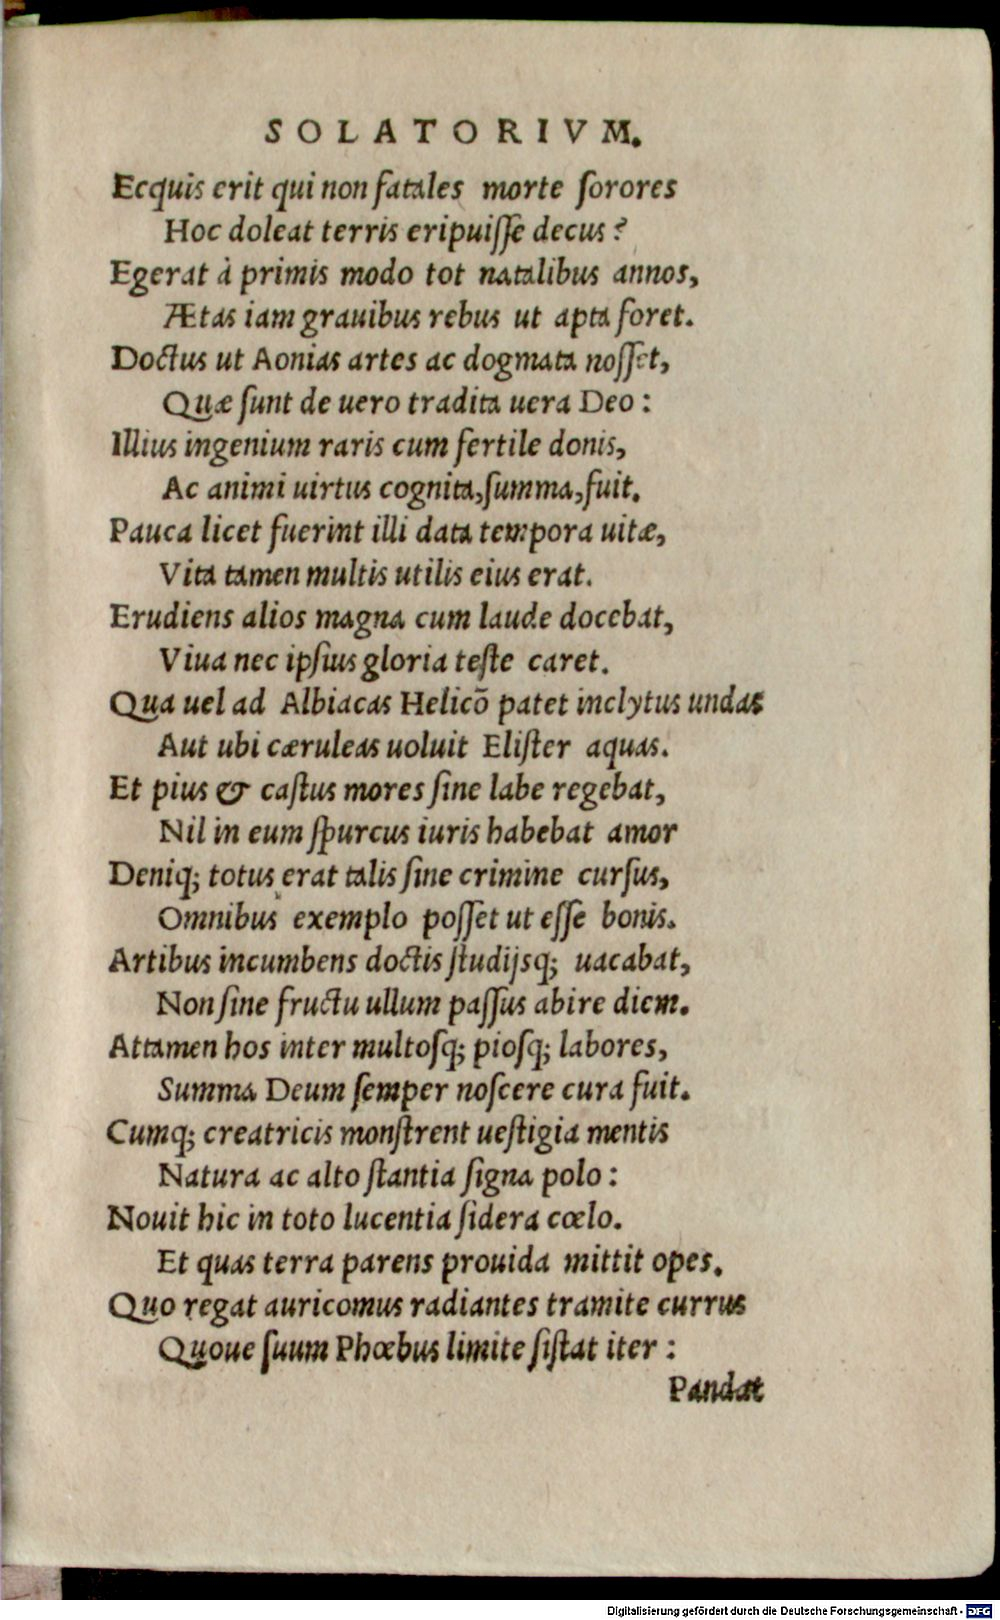 SOLATORIVM.
Ecquis erit qui non fatales morte ſorores
Hoc doleat terris eripuiſſe decus?
Egerat à primis modo tot natalibus annos,
Ætas iam grauibus rebus ut apta foret.
Doctus ut Aonias artes ac dogmata noſſet,
Quæ ſunt de uero tradita uera Deo:
Illius ingenium raris cum fertile donis,
Ac animi uirtus cognita, ſumma, fuit.
Pauca licet fuerint illi data tempora uitæ,
Vita tamen multis utilis eius erat.
Erudiens alios magna cum laude docebat,
Viua nec ipſius gloria teſte caret.
Qua uel ad Albiacas Helicõ patet inclytus undas
Aut ubi cæruleas uoluit Eliſter aquas.
Et pius & caſtus mores ſine labe regebat,
Nil in eum ſpurcus iuris habebat amor
Deniq; totus erat talis ſine crimine curſus,
Omnibus exemplo poſſet ut eſſe bonis.
Artibus incumbens doctis ſtudijsq; uacabat,
Non ſine fructu ullum paſſus abire diem.
Attamen hos inter multoſq; pioſq; labores,
Summa Deum ſemper noſcere cura fuit.
Cumq; creatricis monſtrent ueſtigia mentis
Natura ac alto ſtantia ſigna polo:
Nouit hic in toto lucentia ſidera cœlo.
Et quas terra parens prouida mittit opes.
Quo regat auricomus radiantes tramite currus
Quoue ſuum Phœbus limite ſiſtat iter:
Pandat
Digitalisierung gefördert durch die Deutsche Forschungsgemeinschaft - DFG